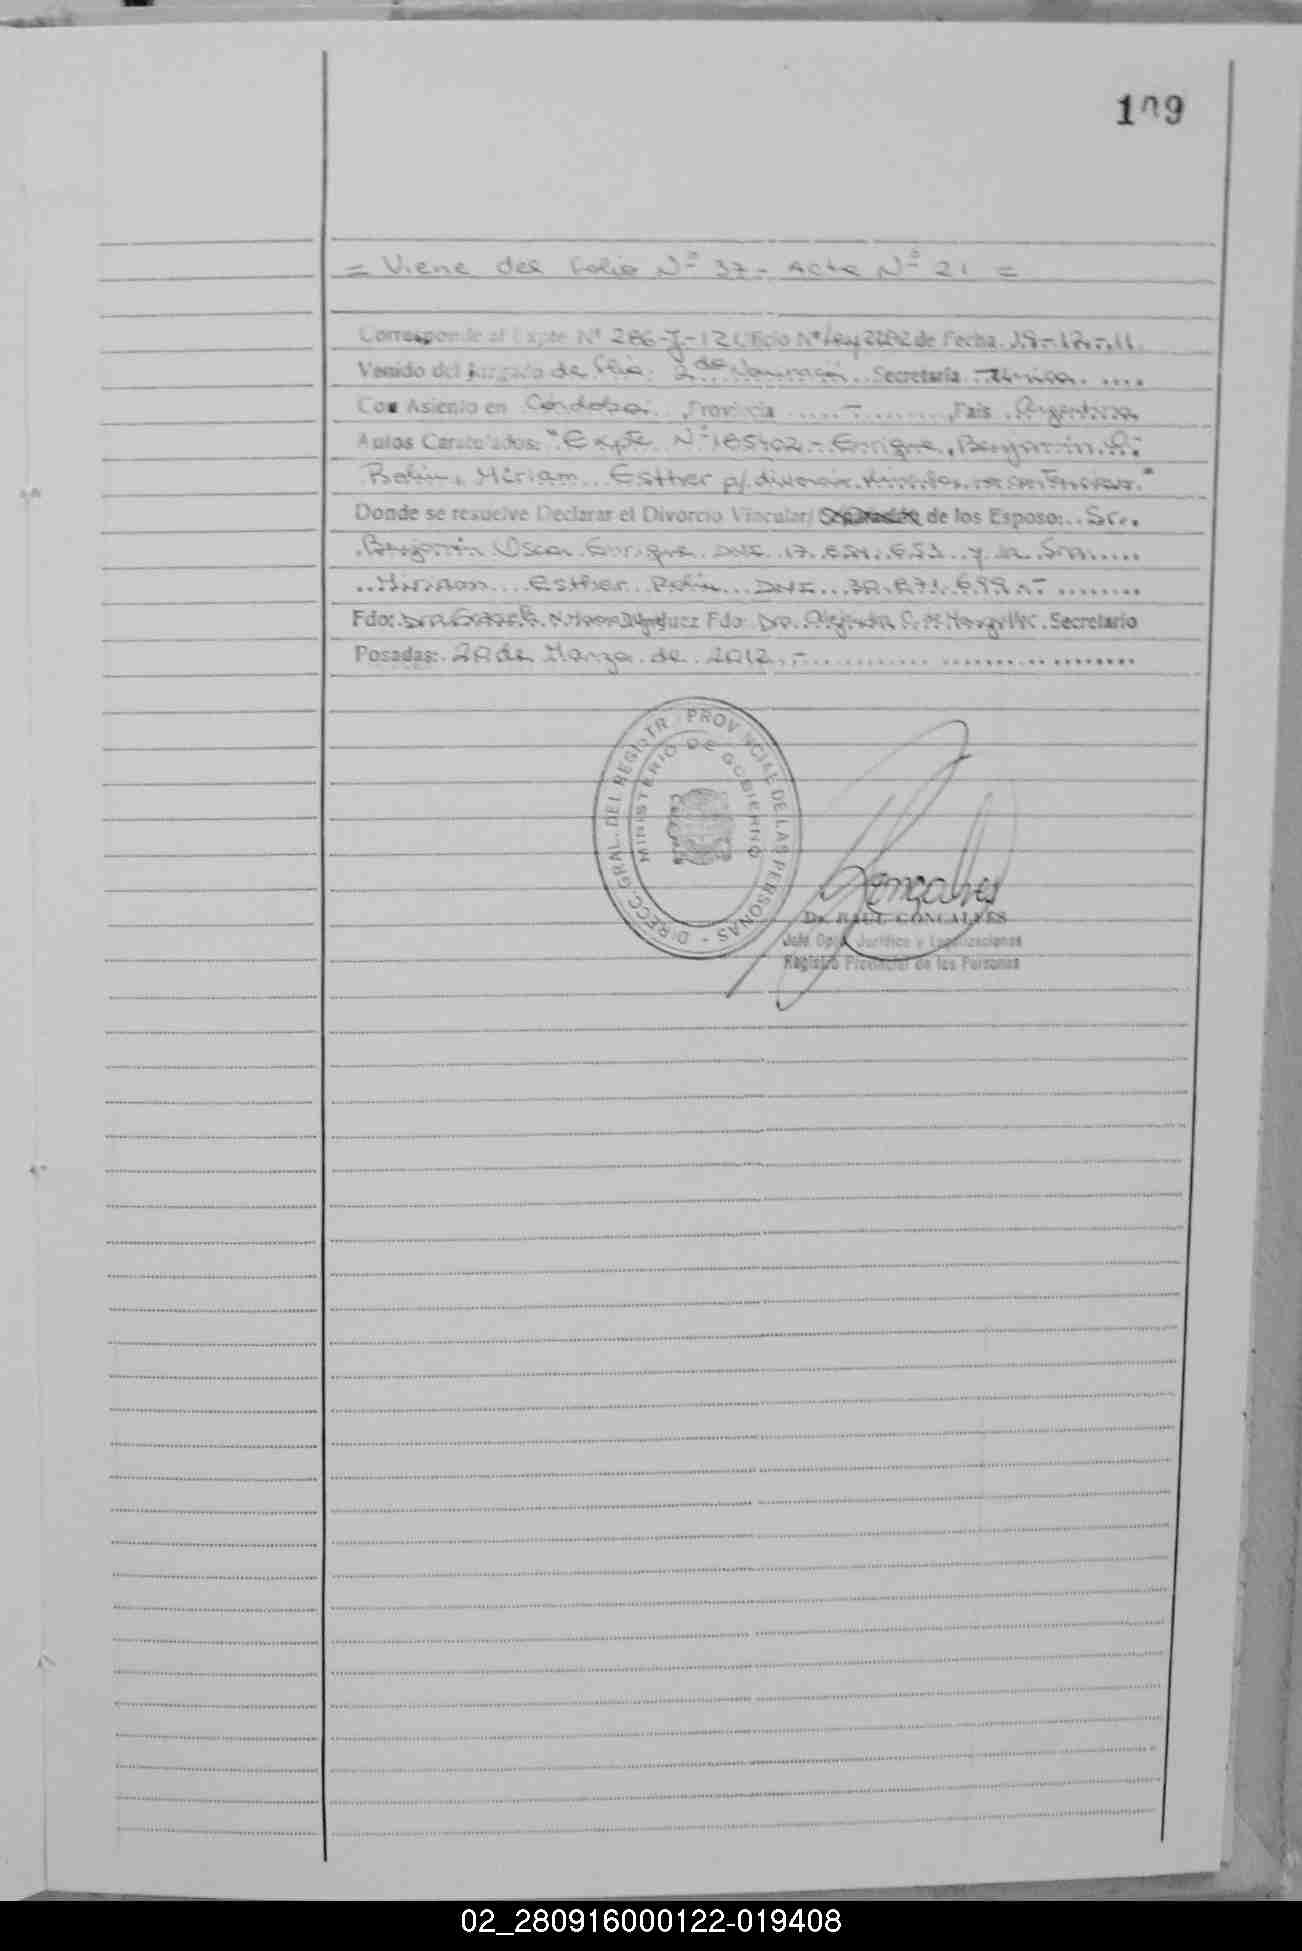 109
= Viene del folio Nº 37 - Acta Nº 21 =
Corresponde al Expte Nº 286-J-12 Oficio Nº Ley 22172 de Fecha 19-12-11
Venido del Juzgado de Flia. 2da Nominación Secretaría Unica
Con Asiento en Córdoba Provincia - País Argentina
Autos Caratulados: "Expte Nº 185402 - Enrique, Benjamín O.
Miriam Esther p/ divorcio vincular
Donde se resuelve Declarar el Divorcio Vincular/ Separación de los Esposo: Sr.
Benjamín Oscar Enrique DNI 17. y la Sra.
Miriam Esther DNI
Fdo: Dra. Juez Fdo Dra. Alejandra Secretario
Posadas: 20 de Marzo de 2012 -
DIRECC. GRAL. DEL REGISTR. PROVINCIAL DE LAS PERSONAS -
MINISTERIO DE GOBIERNO
Goncalves
Dr. RAUL GONCALVES
Jefe Dpto. Jurídico y Legalizaciones
Registro Provincial de las Personas
02_280916000122-019408